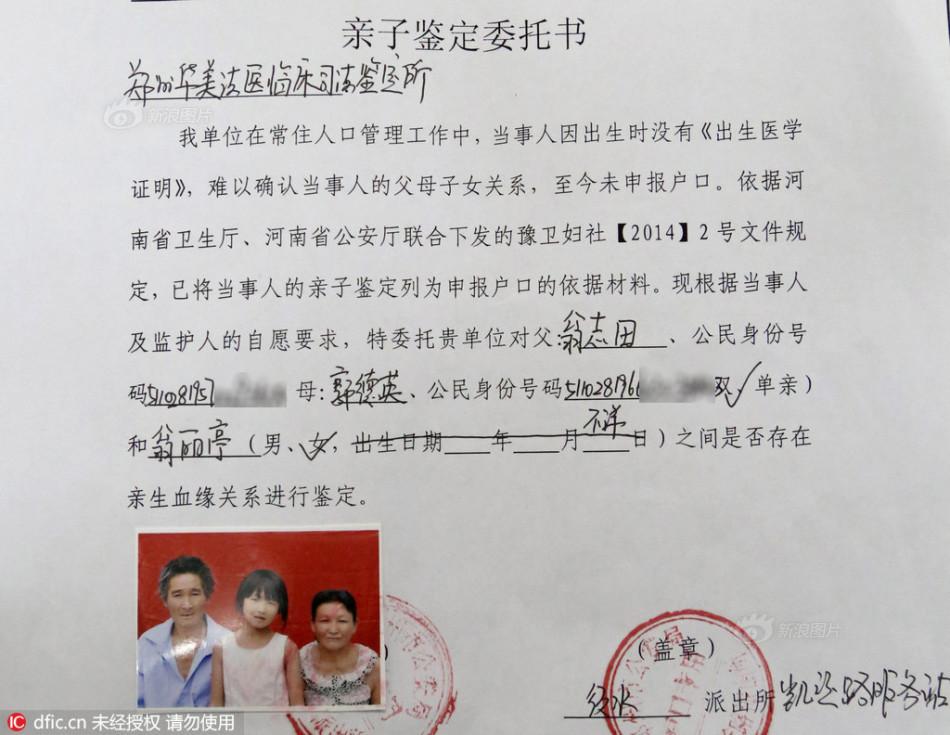 亲子鉴定委托书
郑州华美法医临床司法鉴定所
新浪图片
我单位在常住人口管理工作中，当事人因出生时没有《出生医学
证明》，难以确认当事人的父母子女关系，至今未申报户口。依据河
南省卫生厅、河南省公安厅联合下发的豫卫妇社【2014】2号文件规
定，已将当事人的亲子鉴定列为申报户口的依据材料。现根据当事人
及监护人的自愿要求，特委托贵单位对父:翁志田、公民身份号
码5110281957 母:郭德英、公民身份号码511028196 双✓单亲）
和翁丽婷（男、女，出生日期 年 月 日不详）之间是否存在
亲生血缘关系进行鉴定。
（盖章） 新浪图片
派出所 服务站
IC dfic.cn 未经授权 请勿使用